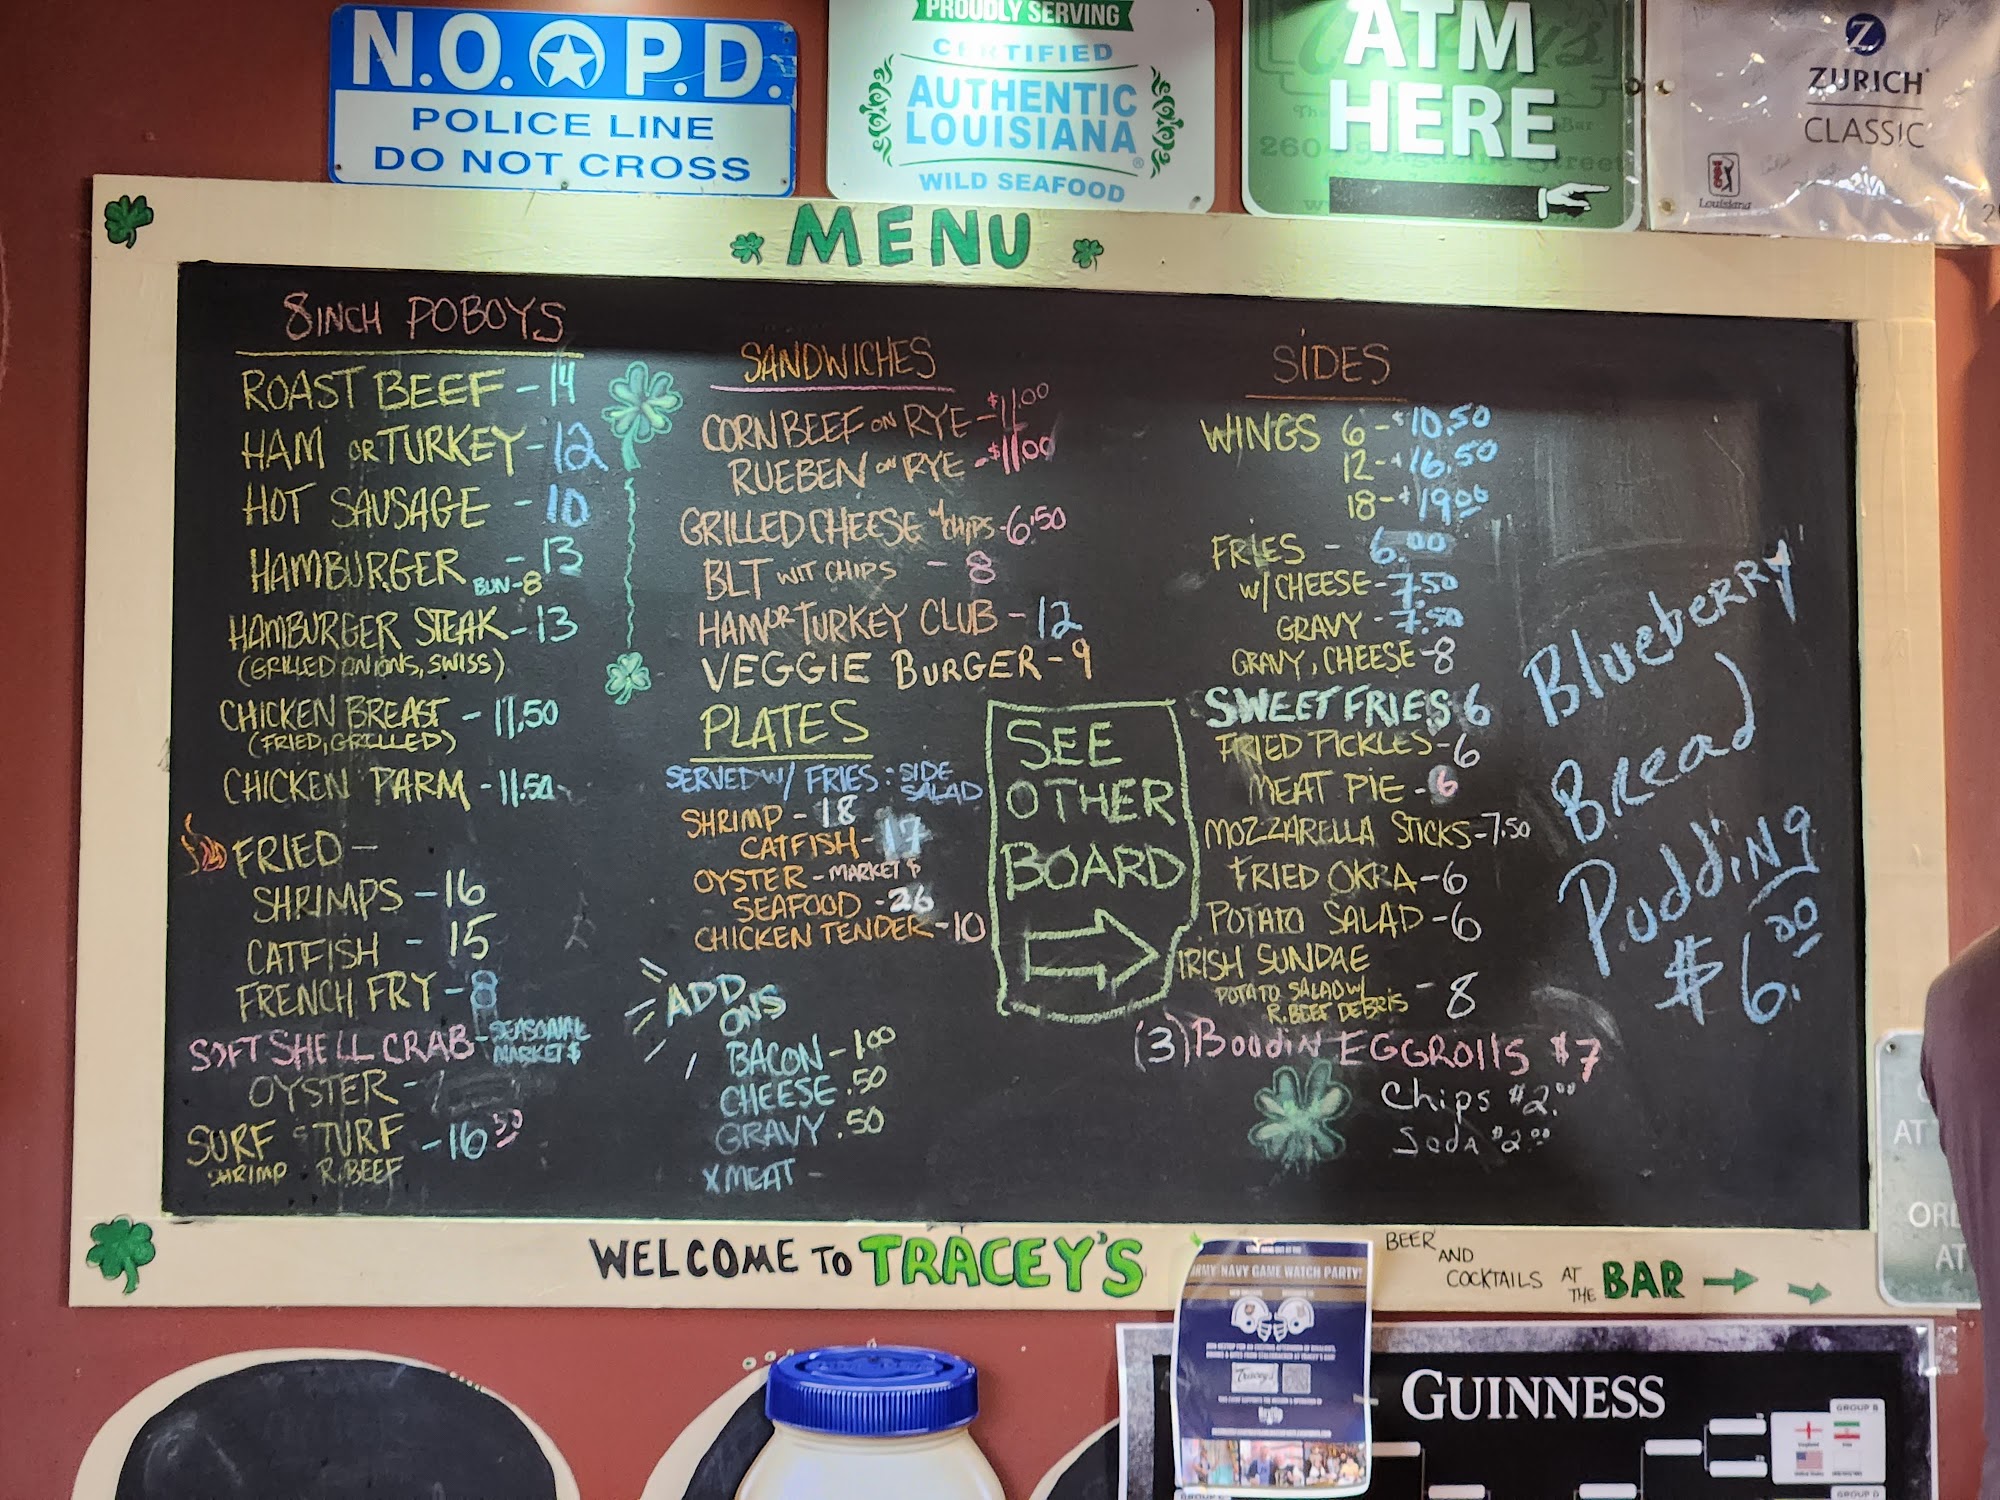 N.O. P.D.
POLICE LINE
DO NOT CROSS
PROUDLY SERVING
CERTIFIED
AUTHENTIC
LOUISIANA
WILD SEAFOOD
ATM
HERE
Z
ZURICH
CLASSIC
Louisiana
MENU
8INCH POBOYS
ROAST BEEF - 14
HAM OR TURKEY - 12
HOT SAUSAGE - 10
HAMBURGER - 13
BUN - 8
HAMBURGER STEAK - 13
(GRILLED ONIONS, SWISS)
CHICKEN BREAST - 11.50
(FRIED, GRILLED)
CHICKEN PARM - 11.50
FRIED -
SHRIMPS - 16
CATFISH - 15
FRENCH FRY - 8
SOFT SHELL CRAB - SEASONAL
MARKET $
OYSTER -
SURF & TURF - 16 50
SHRIMP R. BEEF
SANDWICHES
CORN BEEF ON RYE - $11.00
RUEBEN ON RYE - $11.00
GRILLED CHEESE W/ CHIPS - 6.50
BLT WIT CHIPS - 8
HAM OR TURKEY CLUB - 12
VEGGIE BURGER - 9
PLATES
SERVED W/ FRIES : SIDE
SALAD
SHRIMP - 18
CATFISH - 17
OYSTER - MARKET $
SEAFOOD - 26
CHICKEN TENDER - 10
ADD
ONS
BACON - 1.00
CHEESE .50
GRAVY .50
X MEAT -
SEE
OTHER
BOARD
SIDES
WINGS 6 - $10.50
12 - $16.50
18 - $19.00
FRIES - 6.00
W/ CHEESE - 7.50
GRAVY - 7.50
GRAVY, CHEESE - 8
SWEET FRIES 6
FRIED PICKLES - 6
MEAT PIE - 6
MOZZARELLA STICKS - 7.50
FRIED OKRA - 6
POTATO SALAD - 6
IRISH SUNDAE
POTATO SALAD W/ - 8
R. BEEF DEBRIS
(3) Boudin EGGROllS $7
Chips $2.00
Soda $2.00
Blueberry
Bread
Pudding
$6.00
WELCOME TO TRACEY'S
BEER AND
COCKTAILS AT THE BAR
ARMY-NAVY GAME WATCH PARTY!
Tracey's
GUINNESS
GROUP B